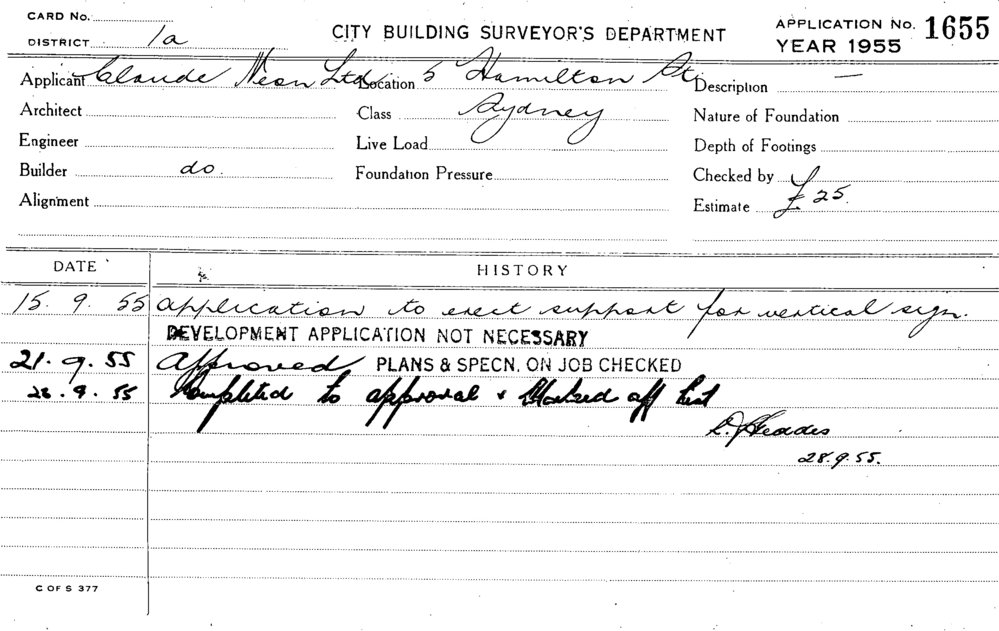 CARD No.
DISTRICT 1a
CITY BUILDING SURVEYOR'S DEPARTMENT
APPLICATION No. 1655
YEAR 1955
Applicant Claude Neon Ltd Location 5 Hamilton St. Description —
Architect Class Sydney Nature of Foundation
Engineer Live Load Depth of Footings
Builder do. Foundation Pressure Checked by
Alignment Estimate £25.
DATE HISTORY
15. 9. 55 application to erect support for vertical sign.
DEVELOPMENT APPLICATION NOT NECESSARY
21. 9. 55 Approved PLANS & SPECN. ON JOB CHECKED
28. 9. 55 Completed to approval & Marked off list
28.9.55.
C OF S 377